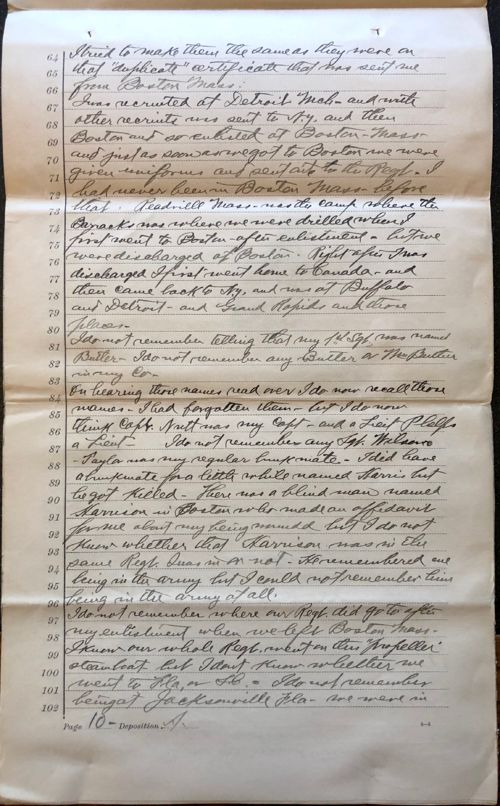 64 I tried to make them the same as they were on
65 that "duplicate" certificate that was sent me
66 from Boston Mass.
67 I was recruited at Detroit Mich - and with
68 other recruits was sent to N.Y. and then
69 Boston and so enlisted at Boston - Mass -
70 and just as soon as we got to Boston we were
71 given uniforms and sent out to the Regt. I
72 had never been in Boston Mass - before
73 that. Readville Mass - was the camp where the
74 Barracks was where we were drilled when I
75 first went to Boston - after enlistment - but we
76 were discharged at Boston. Right after I was
77 discharged I first went home to Canada - and
78 then came back to N.Y. and was at Buffalo
79 and Detroit - and Grand Rapids and those
80 places -
81 I do not remember telling that my 1st Sgt. was named
82 Butler - I do not remember any Butler or Wm Butler
83 in my Co -
84 On hearing those names read over I do now recall those
85 names - I had forgotten them - but I do now
86 think Capt. Nutt was my Capt - and a Lieut Phelps
87 a Lieut - I do not remember any Sgt. Wilson
88 - Taylor was my regular bunkmate - I did have
89 a bunkmate for a little while named Harris but
90 he got killed - There was a blind man named
91 Harrison in Boston who made an affidavit
92 for me about my being wounded but I do not
93 know whether that Harrison was in the
94 same Regt. I was in or not - He remembered me
95 being in the army but I could not remember him
96 being in the army at all.
97 I do not remember where our Regt. did go to after
98 my enlistment when we left Boston Mass -
99 I know our whole Regt. went on this "propeller"
100 steamboat but I dont know whether we
101 went to Fla. or S.C. - I do not remember
102 being at Jacksonville Fla - we were in
Page 10 - Deposition A.